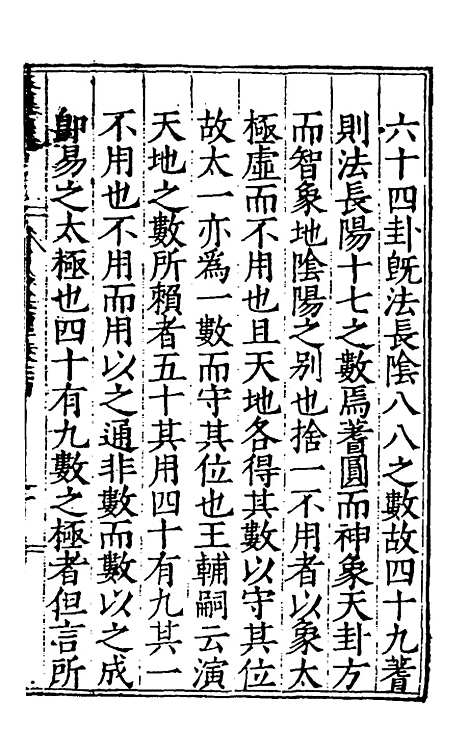 六十四卦既法長陰八八之數故四十九蓍
則法長陽十七之數焉蓍圓而神象天卦方
而智象地陰陽之别也捨一不用者以象太
極虛而不用也且天地各得其數以守其位
故太一亦為一數而守其位也王輔嗣云演
天地之數所賴者五十其用四十有九其一
不用也不用而用以之通非數而數以之成
即易之太極也四十有九數之極者但言所